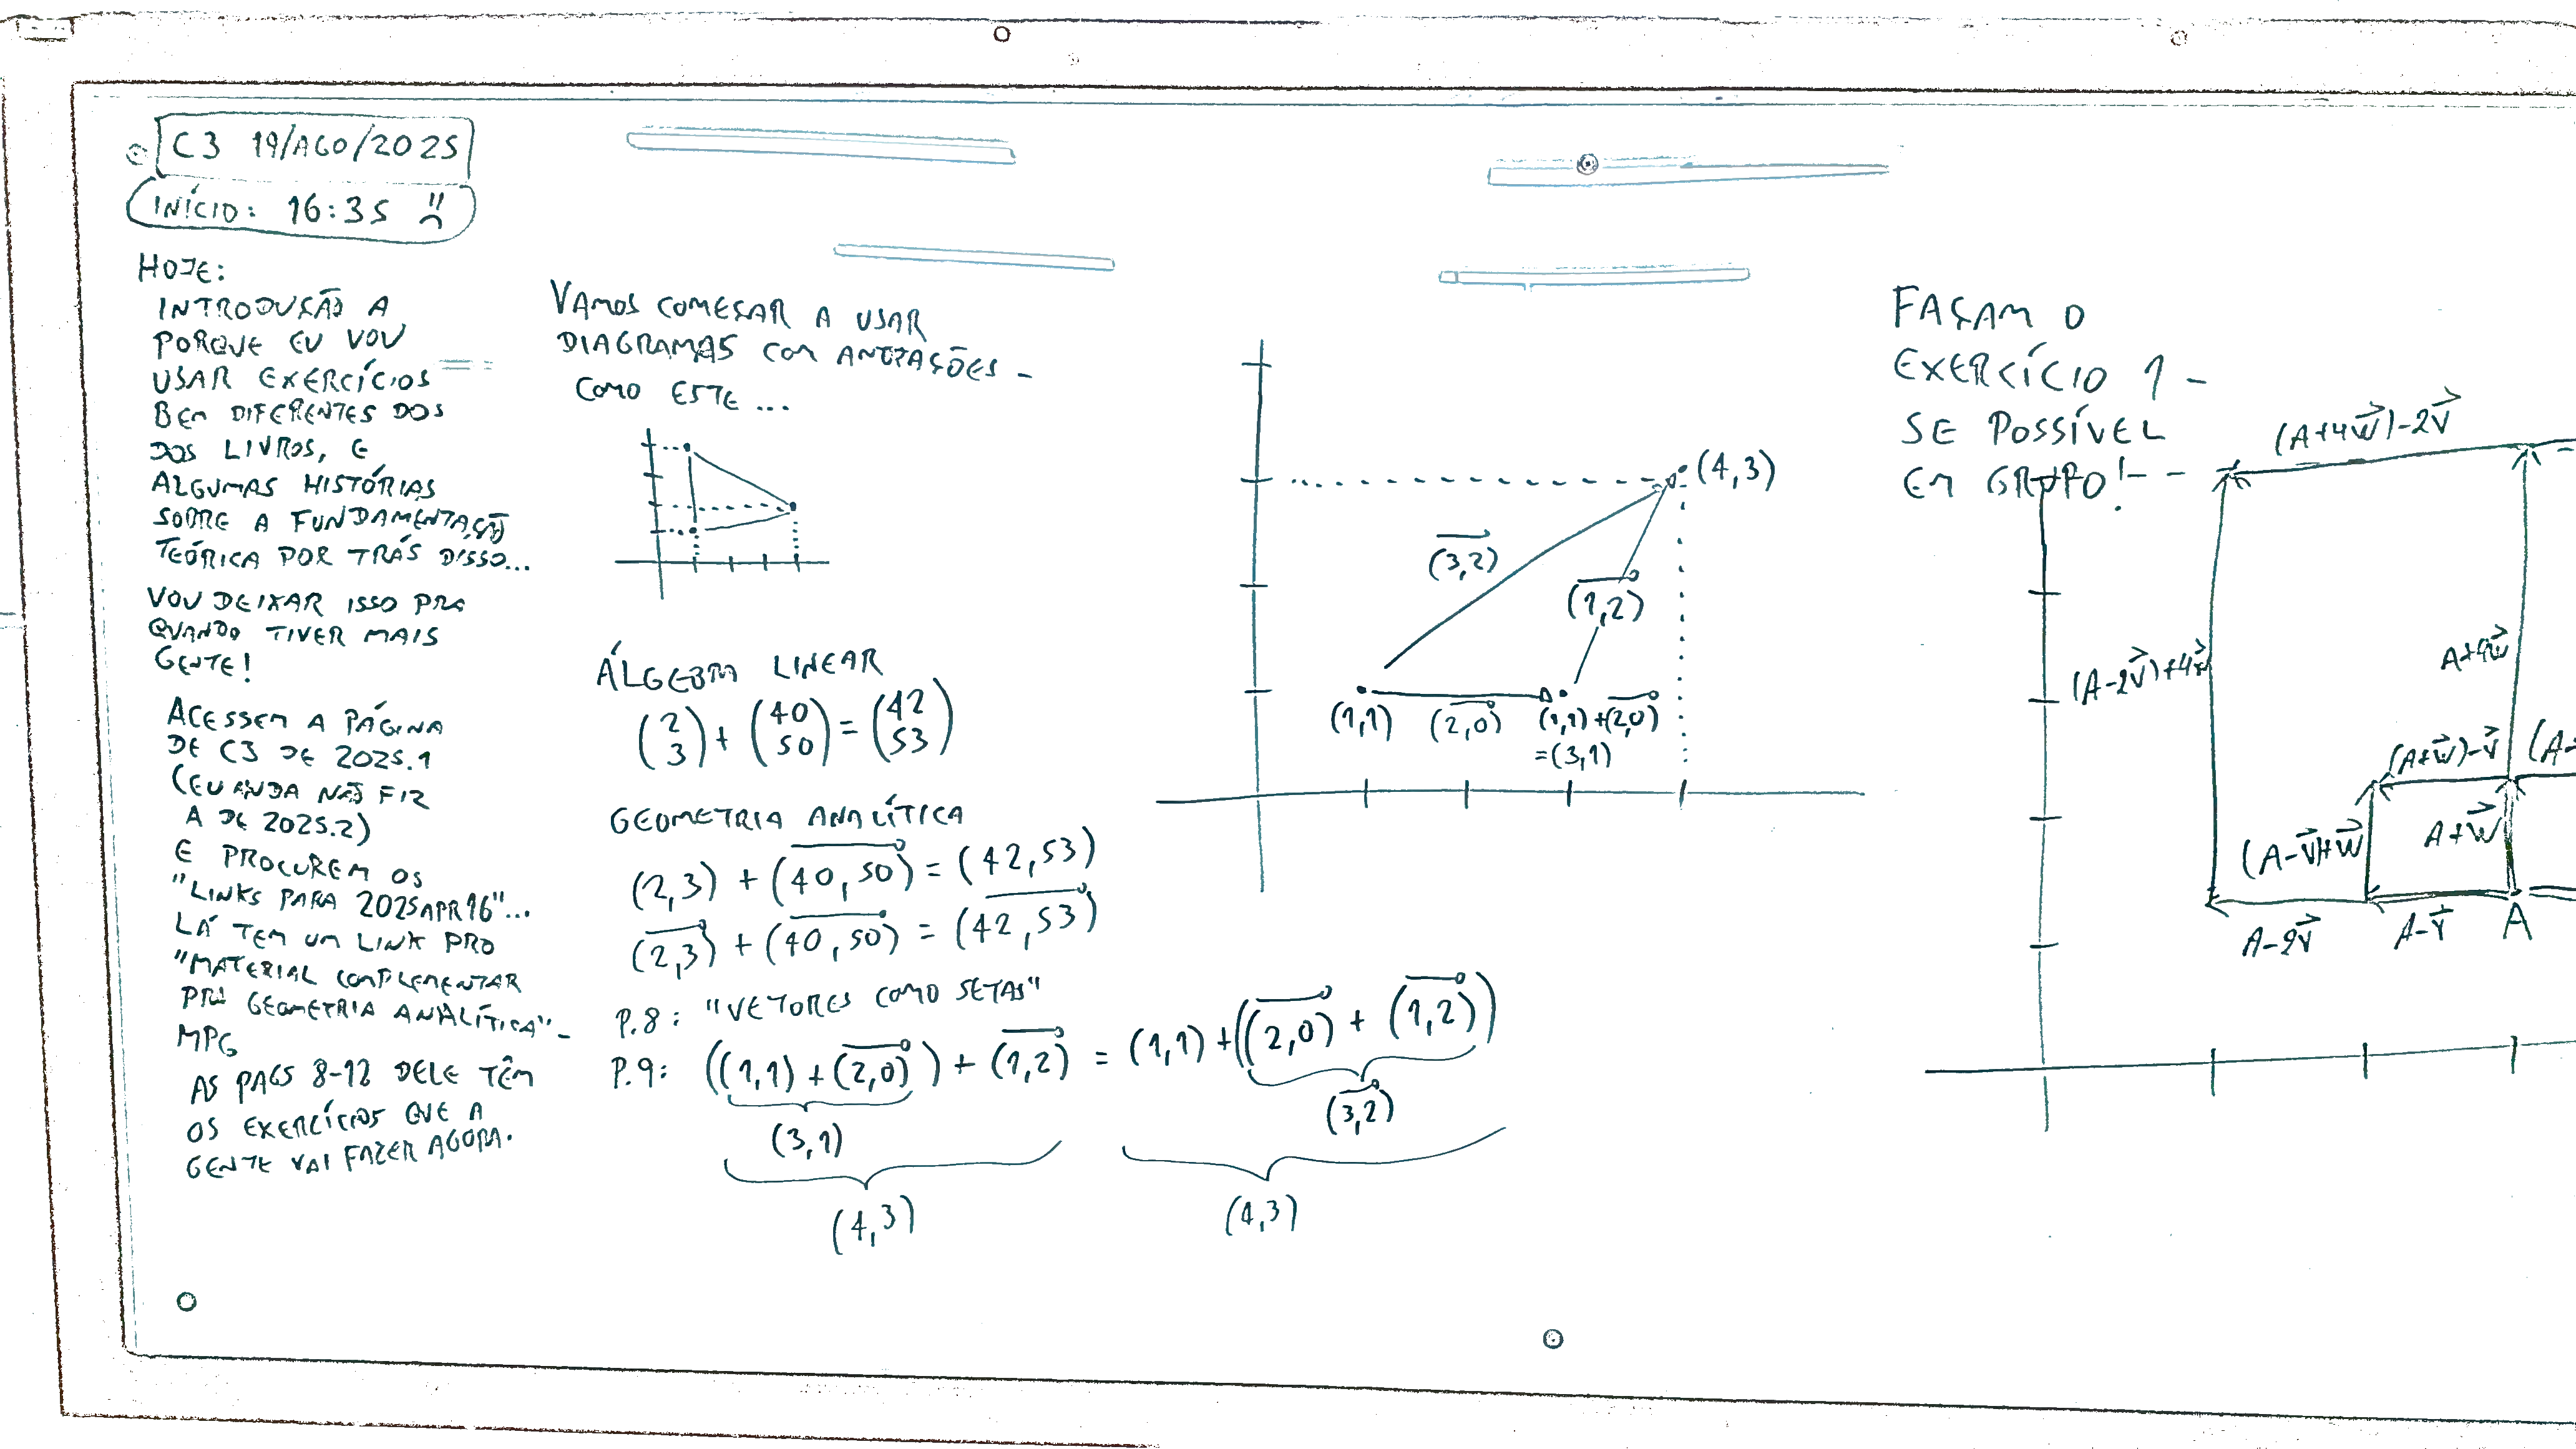 C3 19/AGO/2025
INÍCIO: 16:35
HOJE:
INTRODUÇÃO A
PORQUE EU VOU
USAR EXERCÍCIOS
BEM DIFERENTES DOS
DOS LIVROS, E
ALGUMAS HISTÓRIAS
SOBRE A FUNDAMENTAÇÃO
TEÓRICA POR TRÁS DISSO...
VOU DEIXAR ISSO PRA
QUANDO TIVER MAIS
GENTE!
ACESSEM A PÁGINA
DE C3 DE 2025.1
(EU AINDA NÃO FIZ
A DE 2025.2)
E PROCUREM OS
"LINKS PARA 2025APR16"...
LÁ TEM UM LINK PRO
"MATERIAL COMPLEMENTAR
PRA GEOMETRIA ANALÍTICA" -
MPG
AS PAGS 8-12 DELE TÊM
OS EXERCÍCIOS QUE A
GENTE VAI FAZER AGORA.
VAMOS COMEÇAR A USAR
DIAGRAMAS COM ANOTAÇÕES -
COMO ESTE ...
ÁLGEBRA LINEAR
(2 3) + (40 50) = (42 53)
GEOMETRIA ANALÍTICA
(2,3) + (40,50)→ = (42,53)
(2,3)→ + (40,50)→ = (42,53)→
P.8: "VETORES COMO SETAS"
P.9: ((1,1) + (2,0)→) + (1,2)→ = (1,1) + ((2,0)→ + (1,2)→)
(3,1)
(3,2)→
(4,3)
(4,3)
(4,3)
(3,2)→
(1,2)→
(1,1)
(2,0)→
(1,1)+(2,0)→
=(3,1)
FAÇAM O
EXERCÍCIO 1 -
SE POSSÍVEL
EM GRUPO!
(A+4w⃗)-2v⃗
(A-2v⃗)+4w⃗
A+4w⃗
(A+w⃗)-v⃗
(A-v⃗)+w⃗
A+w⃗
A-2v⃗
A-v⃗
A